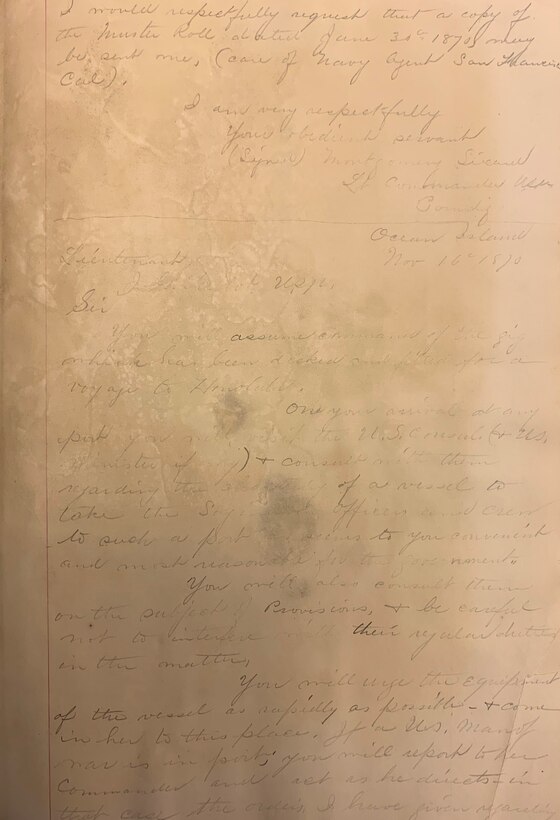 I would respectfully request that a copy of
the Muster Roll dated June 30th 1870, may
be sent me, (care of Navy Agent San Francisco
Cal).
I am very respectfully
Your obedient servant
(Signed) Montgomery Sicard
Lt Commander USN
Comdg
Ocean Island
Nov 16th 1870
Lieutenant
U.S.N.
Sir
You will assume command of the gig
which has been decked and fitted for a
voyage to Honolulu.
On your arrival at any
port you will visit the U.S. Consul (+ U.S.
Minister if any) + consult with them
regarding the of a vessel to
take the officers and crew
to such a port seems to you convenient
and most reasonable for the government.
You will also consult them
on the subject of Provisions, + be careful
not to interfere with their regular duties
in the matter,
You will urge the equipment
of the vessel as rapidly as possible - + come
in her to this place. If a U.S. Man of
war is in port, you will report to her
Commander and act as he directs - in
that case the orders I have given regarding